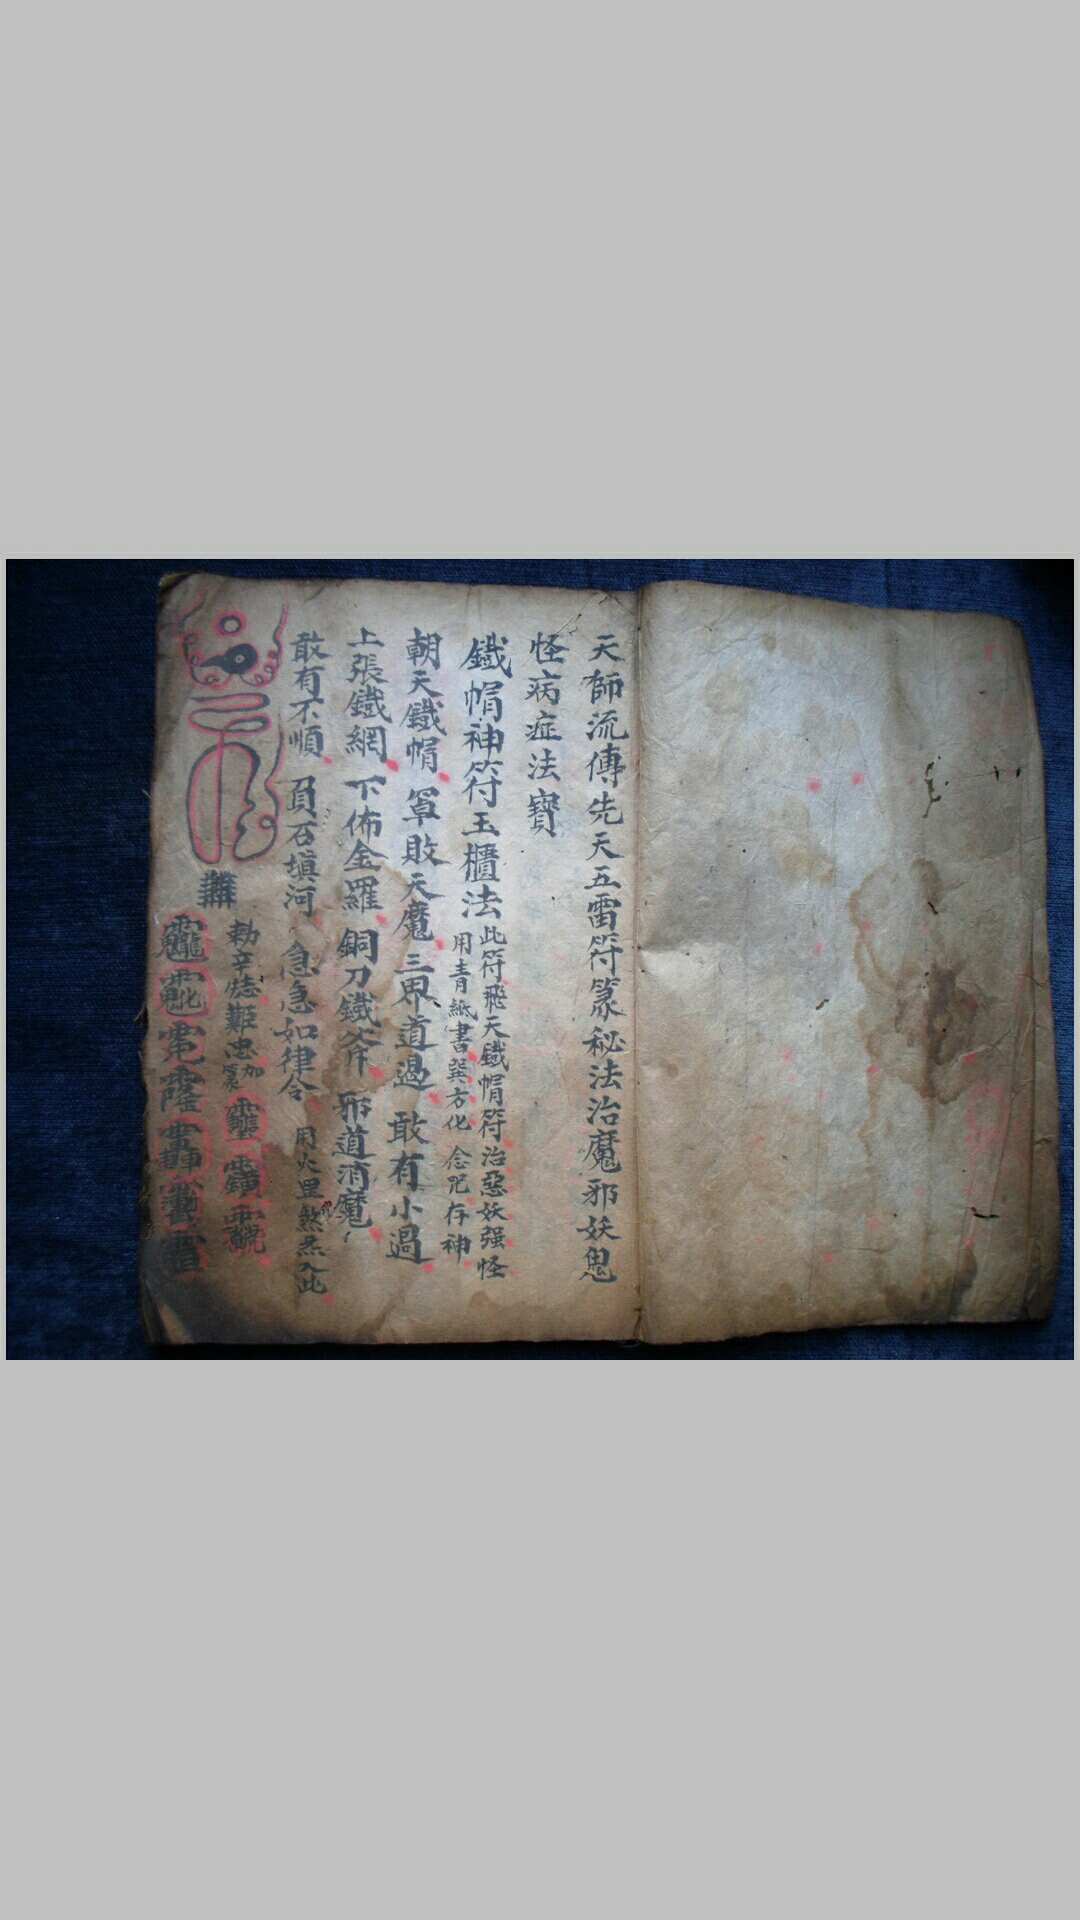 天師流傳先天五雷符篆秘法治魔邪妖鬼
怪病症法寶
鐵帽神符玉櫃法
此符飛天鐵帽符治惡妖强怪
用青紙書巽方化 念咒存神
朝天鐵帽 罩敗天魔 三界道過 敢有小過
上張鐵網 下佈金羅 銅刀鐵斧 邪道消魔
敢有不順 負石塡河 急急如律令
用火里煞炁入此
勅辛
難忠加篆